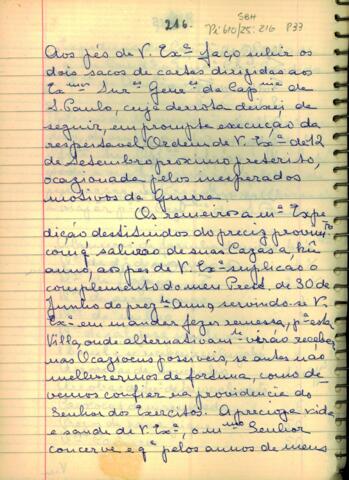 216.
SBH
Pi 610/25: 216 P33
Aos pés de V. Exª faço subir os
dois sacos de cartas dirigidas aos
Exmos Snres Genes da Capnia de
S. Paulo, cuja derrota deixei de
seguir, em prompta execução da
respeitavel Ordem de V. Exª de 12
de Setembro proximo preterito,
ocazionada pelos inesperados
motivos de Guerra.
Os remeiros da mª Expe
dição destituidos do precizo provimto
com q' sahirão de suas Cazas a hũ
anno, aos pés de V. Exª suplicão o
complemento do meu Prest. de 30 de
Junho do prezte Anno, servindo-se V.
Exª em mandar fazer remessa, pª esta
Villa, onde alternativamte virão receber
nas Ocazioens possiveis, se antes não
melhorarmos de fortuna, como de
vemos confiar na providencia do
Senhor dos Exercitos. A precioza vida
e saude de V. Exª, o mmo Senhor
concerve e gde pelos annos de meus